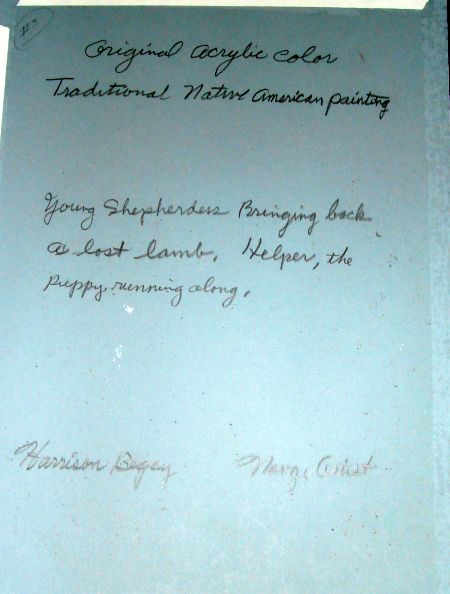 #3
Original Acrylic Color
Traditional Native American painting
Young Shepherdess Bringing back
a lost lamb. Helper, the
Puppy running along.
Harrison Begay Navajo Artist